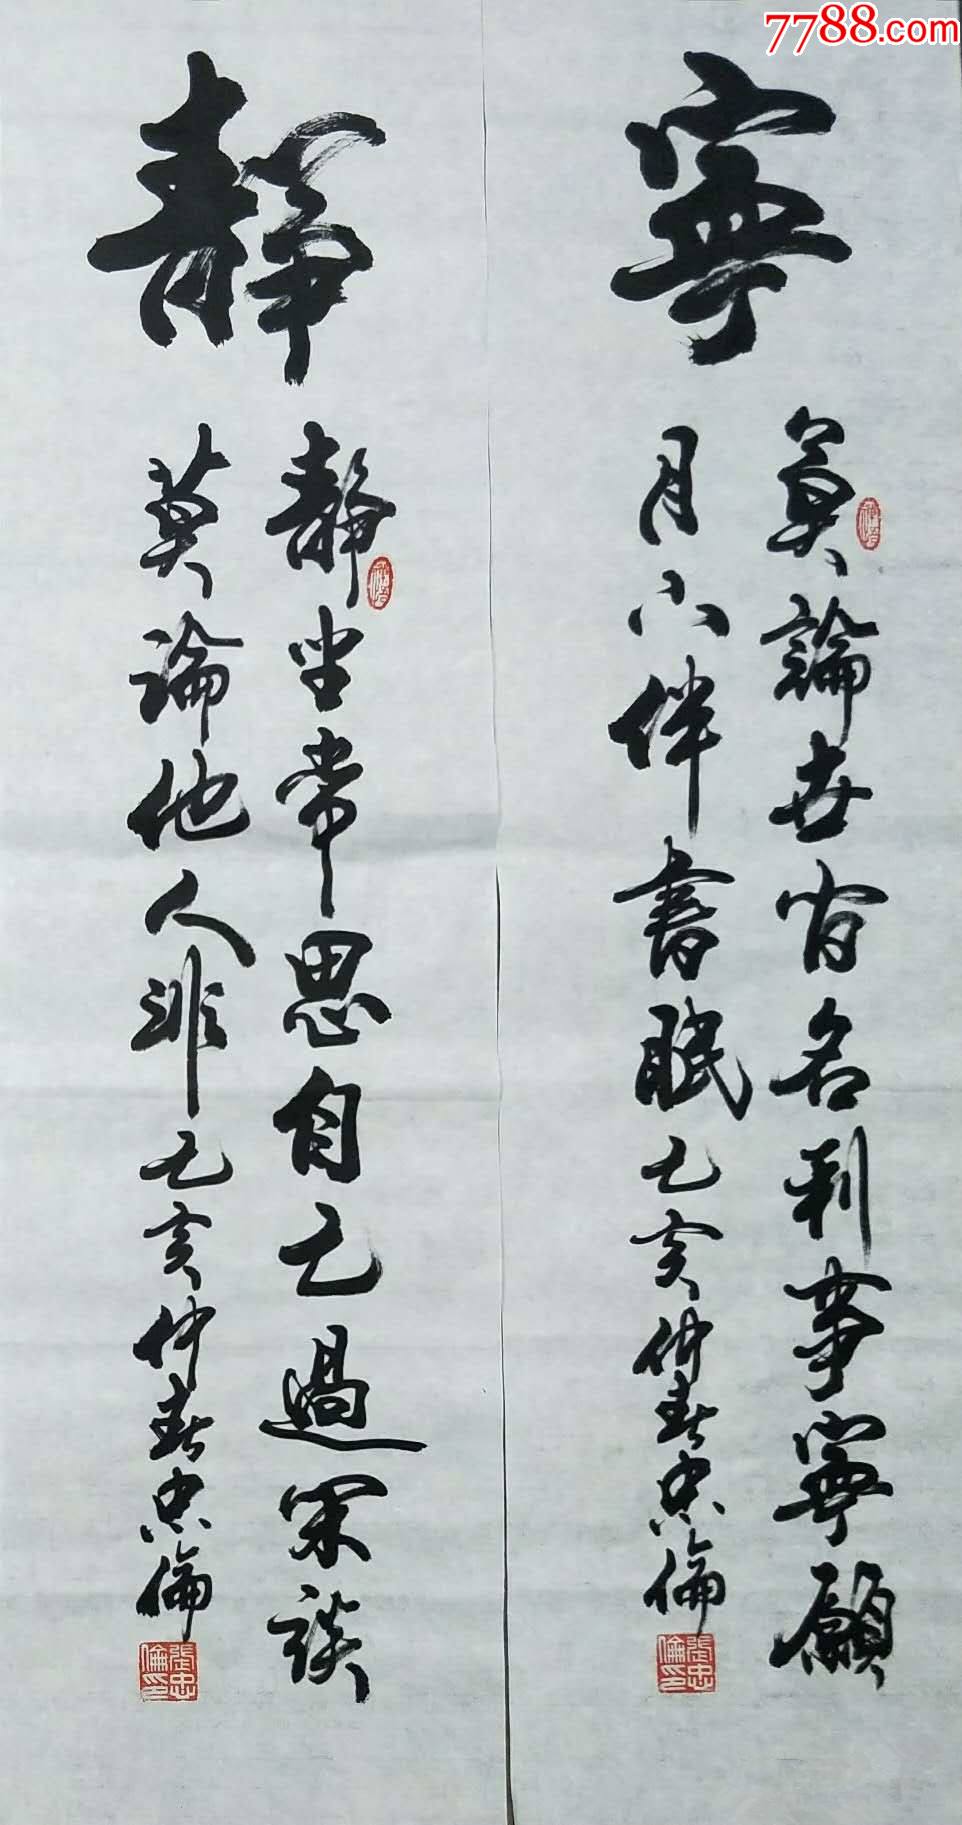 7788.com
寧
莫論世間名利事寧願
月下伴書眠乙亥仲春忠倫
靜
靜坐常思自己過閑談
莫論他人非乙亥仲春忠倫
張忠倫印
張忠倫印